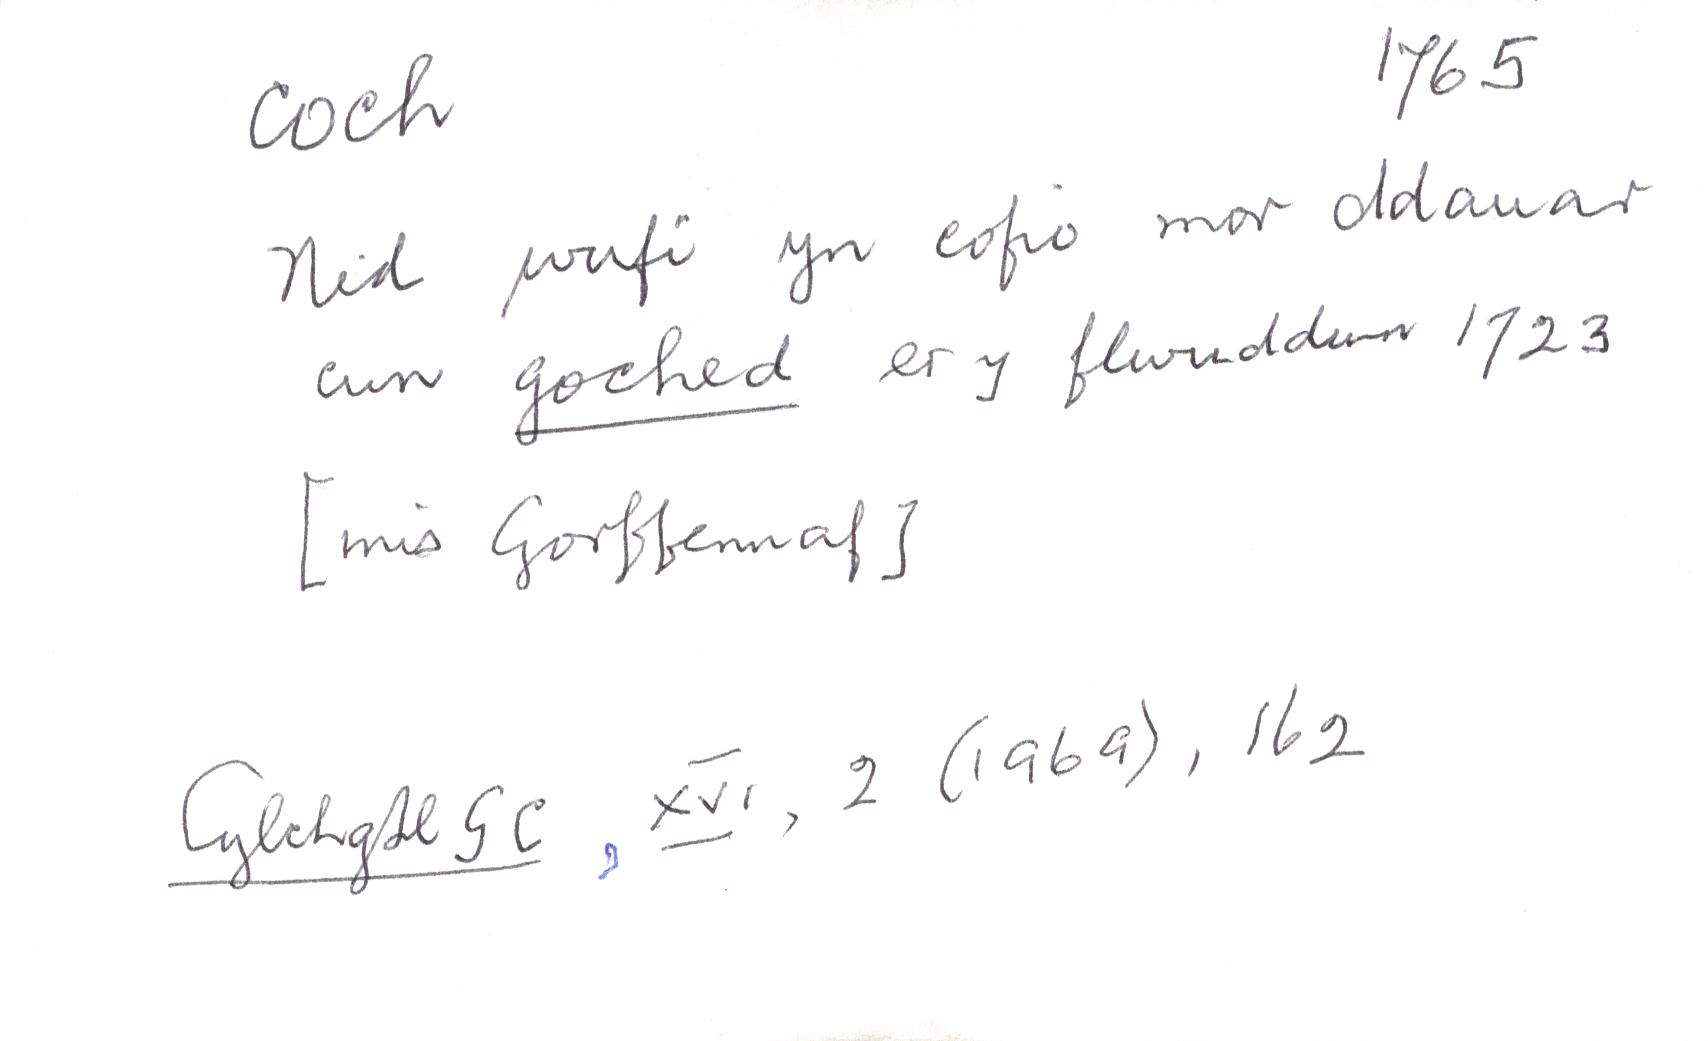 coch 1765
Nid wufi yn cofio mor ddauar
cun goched er y flwuddun 1723
[mis Gorffennaf]
CylchgHC, XVI, 2 (1969), 162